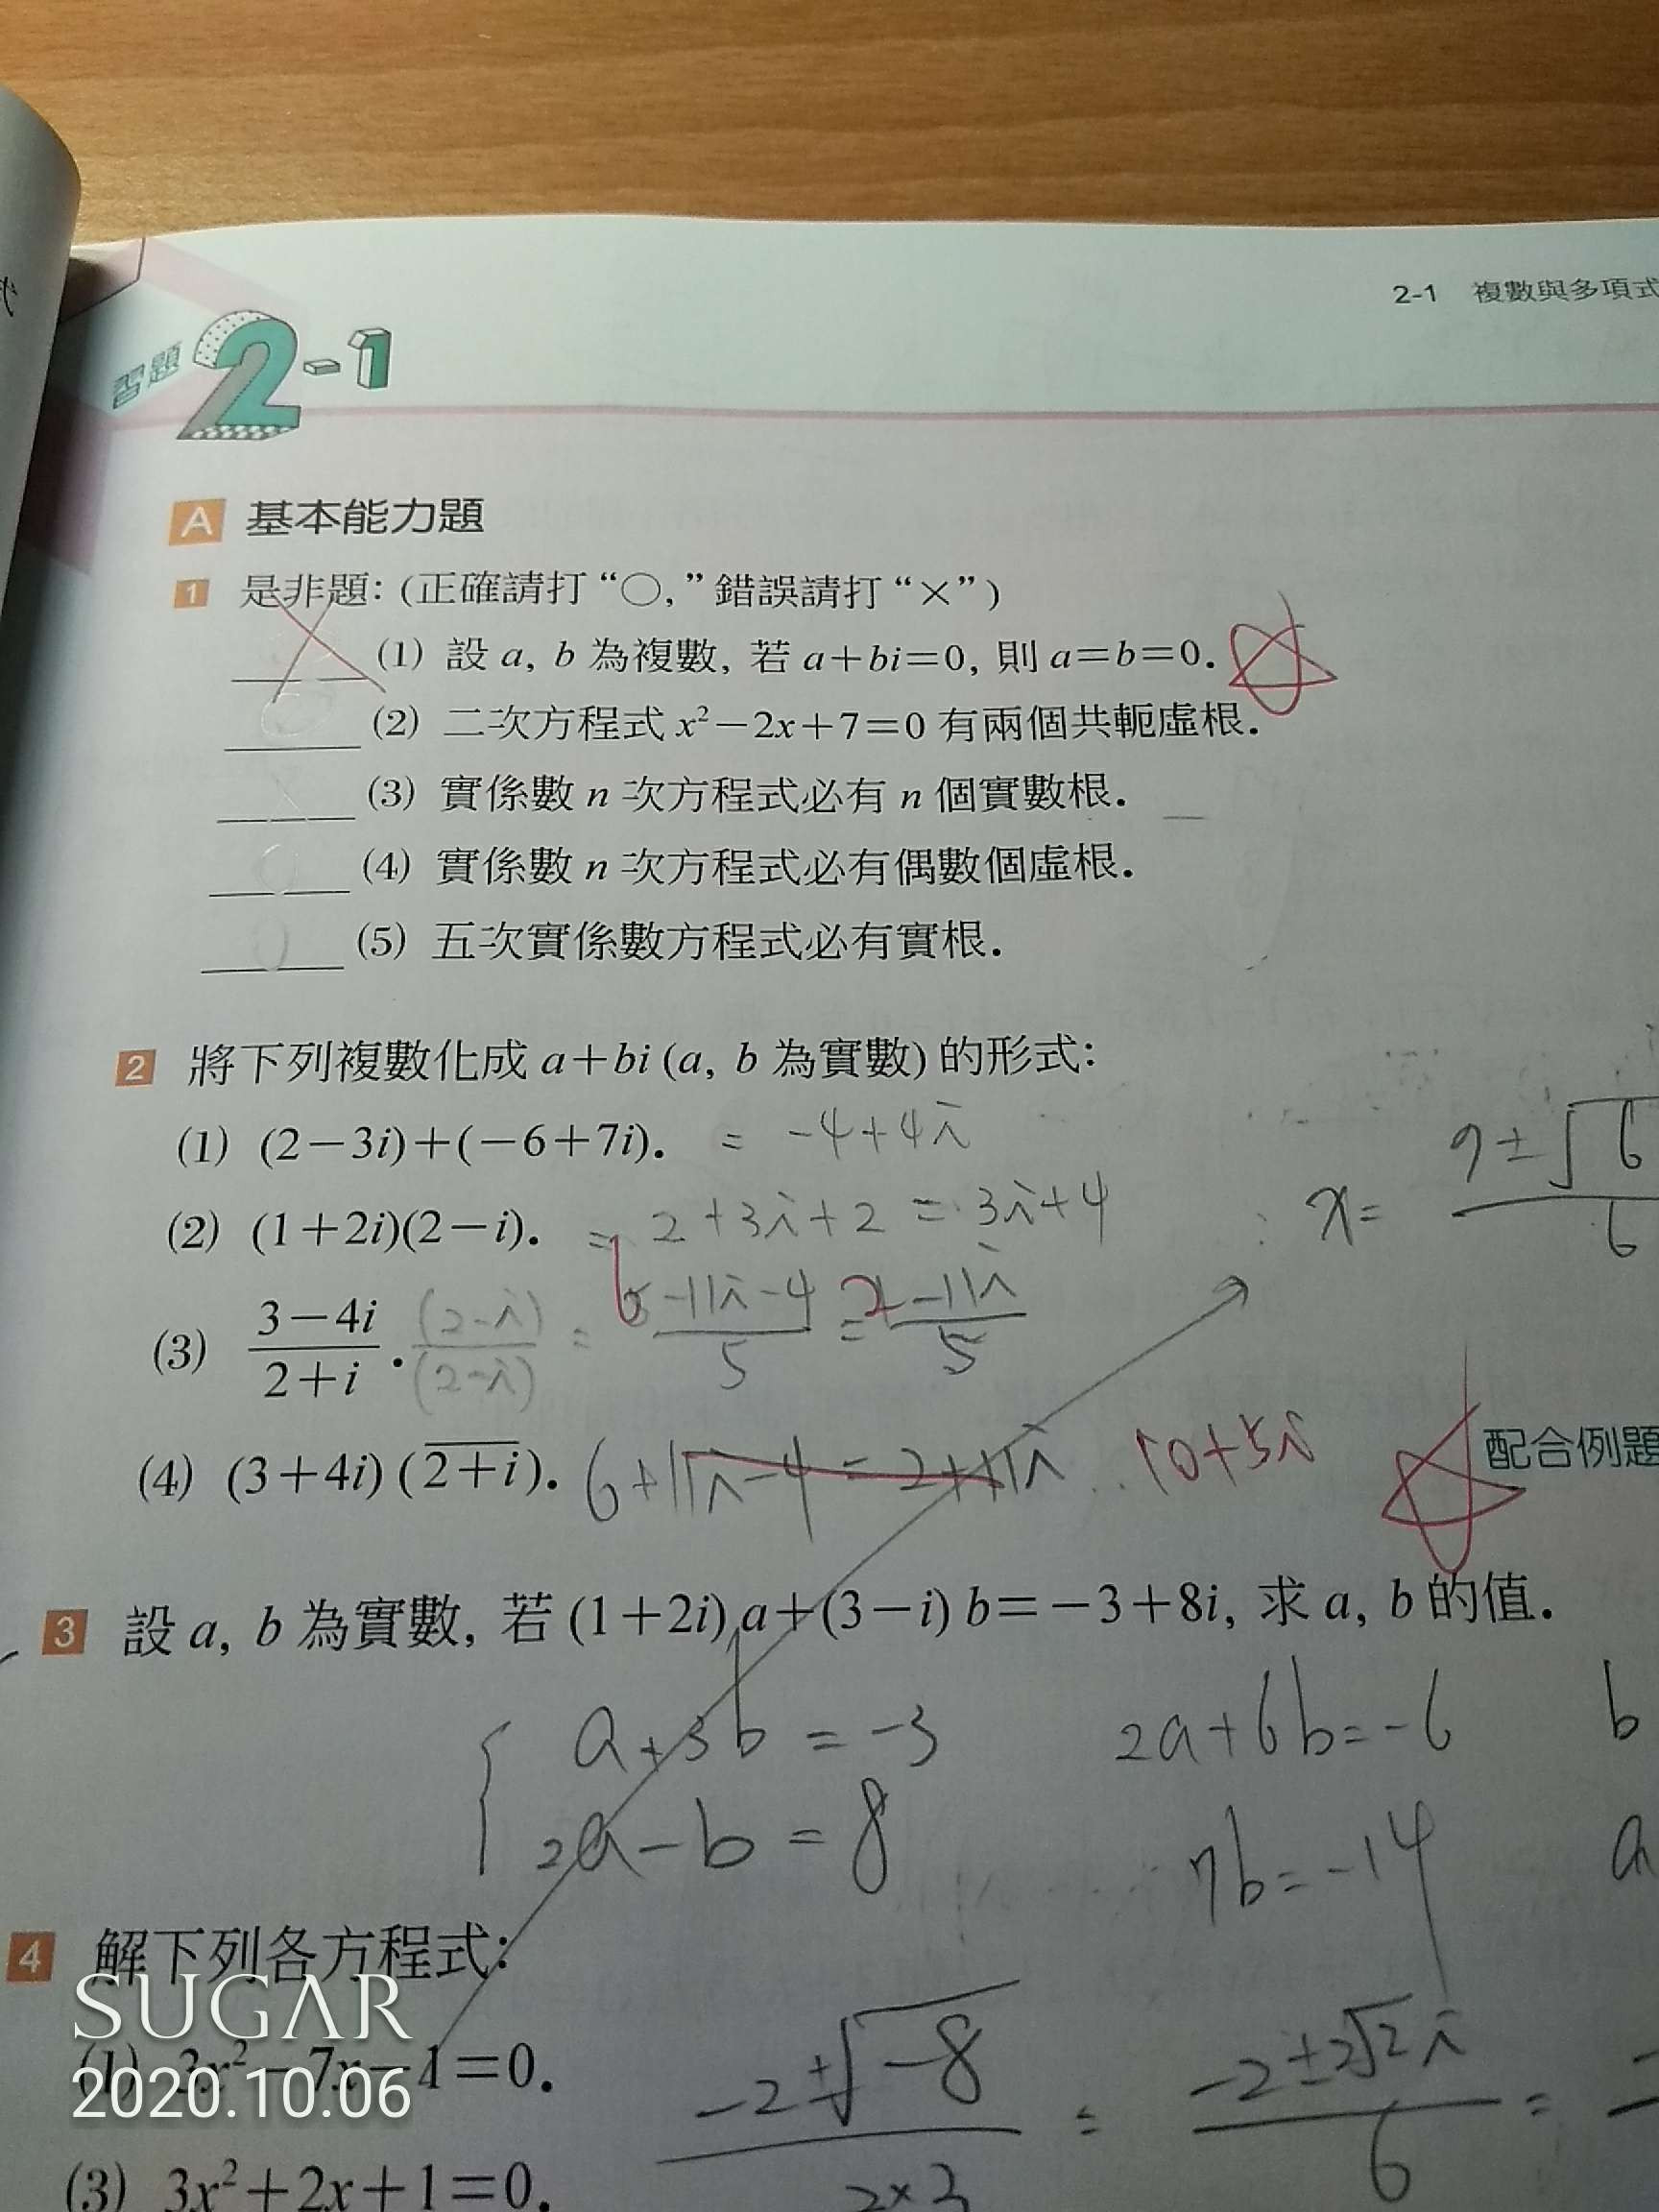 2-1 複數與多項式
習題 2-1
A 基本能力題
1 是非題：(正確請打“○,”錯誤請打“×”)
× (1) 設 a, b 為複數, 若 a+bi=0, 則 a=b=0.
(2) 二次方程式 x²−2x+7=0 有兩個共軛虛根.
(3) 實係數 n 次方程式必有 n 個實數根.
(4) 實係數 n 次方程式必有偶數個虛根.
0 (5) 五次實係數方程式必有實根.
2 將下列複數化成 a+bi (a, b 為實數) 的形式：
(1) (2−3i)+(−6+7i). = -4+4i
(2) (1+2i)(2−i). = 2+3i+2 = 3i+4
x= 9±√6 / 6
(3) (3−4i)/(2+i). (2-i)/(2-i) = (6-11i-4)/5 = (2-11i)/5
(4) (3+4i)(\overline{2+i}). 6+11i-4=2+11i 10+5i
配合例題
3 設 a, b 為實數, 若 (1+2i)a+(3−i)b=−3+8i, 求 a, b 的值.
a+3b=-3 2a+6b=-6 b
2a-b=8 7b=-14 a
4 解下列各方程式：
SUGAR
(1) 3x²−7x−1=0.
2020.10.06
(3) 3x²+2x+1=0.
(-2±√-8)/(2×3) = (-2±2√2i)/6 =